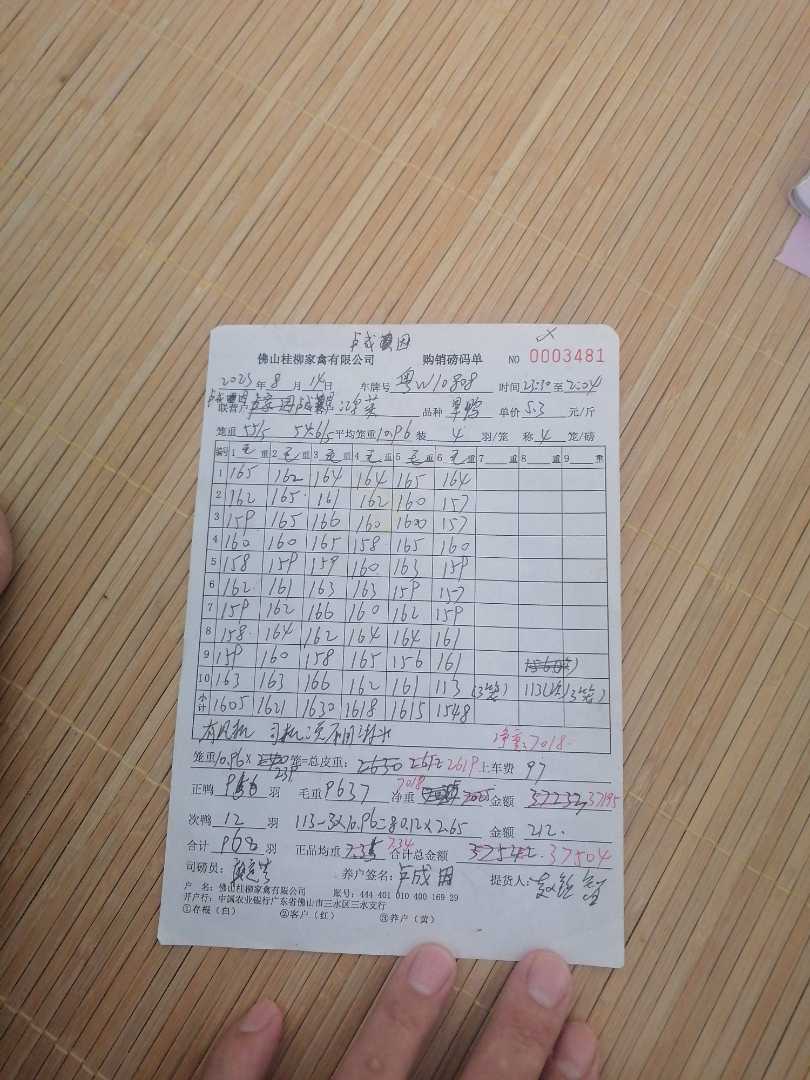 卢成因
佛山桂柳家禽有限公司 购销磅码单 NO 0003481
2023 年 8 月 14 日 车牌号 粤W10808 时间 23:30 至 2:04
联营户 品种 单价 5.3 元/斤
笼重 55/5 54.6/5 平均笼重 10.96 装 4 羽/笼 称 4 笼/磅
编号 1 毛 重 2 毛 重 3 毛 重 4 毛 重 5 毛 重 6 毛 重 7 重 8 重 9 重
1 165 162 164 164 165 164
2 162 165 161 162 160 157
3 159 165 166 160 160 157
4 160 160 165 158 165 160
5 158 159 159 160 163 159
6 162 161 163 163 159 157
7 159 162 166 160 162 159
8 158 164 162 164 164 161
9 159 160 158 165 156 161
10 163 163 166 162 161 113 (3笼) 113 (3笼)
小计 1605 1621 1630 1618 1615 1548
有风机 司机说不用淋水 净重:7018
笼重 10.96 × 239 笼=总皮重: 2630 2612 2619 上车费 97
正鸭 956 羽 毛重 9637 净重 7018 7025 金额 37232 37195
次鸭 12 羽 113-3×10.96=80.12×2.65 金额 212.
合计 968 羽 正品均重 7.35 7.34 合计总金额 37542 37504
司磅员: 养户签名: 卢成因 提货人:
户 名: 佛山桂柳家禽有限公司 账号: 444 401 010 400 169 29
开户行: 中国农业银行广东省佛山市三水区三水支行
①存根(白) ②客户(红) ③养户(黄)